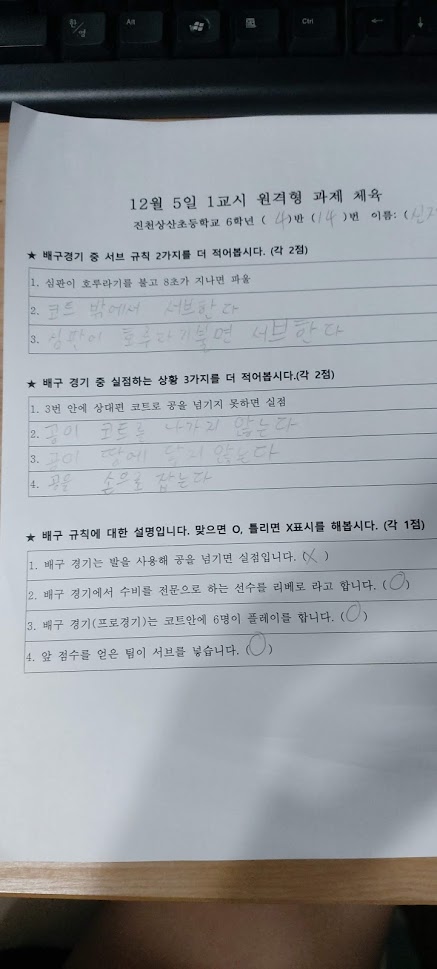 한/영
Alt
Ctrl
←
↓
12월 5일 1교시 원격형 과제 체육
진천상산초등학교 6학년 ( 4 )반 ( 14 )번 이름: ( 신
★ 배구경기 중 서브 규칙 2가지를 더 적어봅시다. (각 2점)
1. 심판이 호루라기를 불고 8초가 지나면 파울
2. 코트 밖에서 서브한다
3. 심판이 호루라기불면 서브한다
★ 배구 경기 중 실점하는 상황 3가지를 더 적어봅시다.(각 2점)
1. 3번 안에 상대편 코트로 공을 넘기지 못하면 실점
2. 공이 코트를 나가지 않는다
3. 공이 땅에 닿지 않는다
4. 공을 손으로 잡는다
★ 배구 규칙에 대한 설명입니다. 맞으면 O, 틀리면 X표시를 해봅시다. (각 1점)
1. 배구 경기는 발을 사용해 공을 넘기면 실점입니다. ( X )
2. 배구 경기에서 수비를 전문으로 하는 선수를 리베로 라고 합니다. ( O )
3. 배구 경기(프로경기)는 코트안에 6명이 플레이를 합니다. ( O )
4. 앞 점수를 얻은 팀이 서브를 넣습니다. ( O )